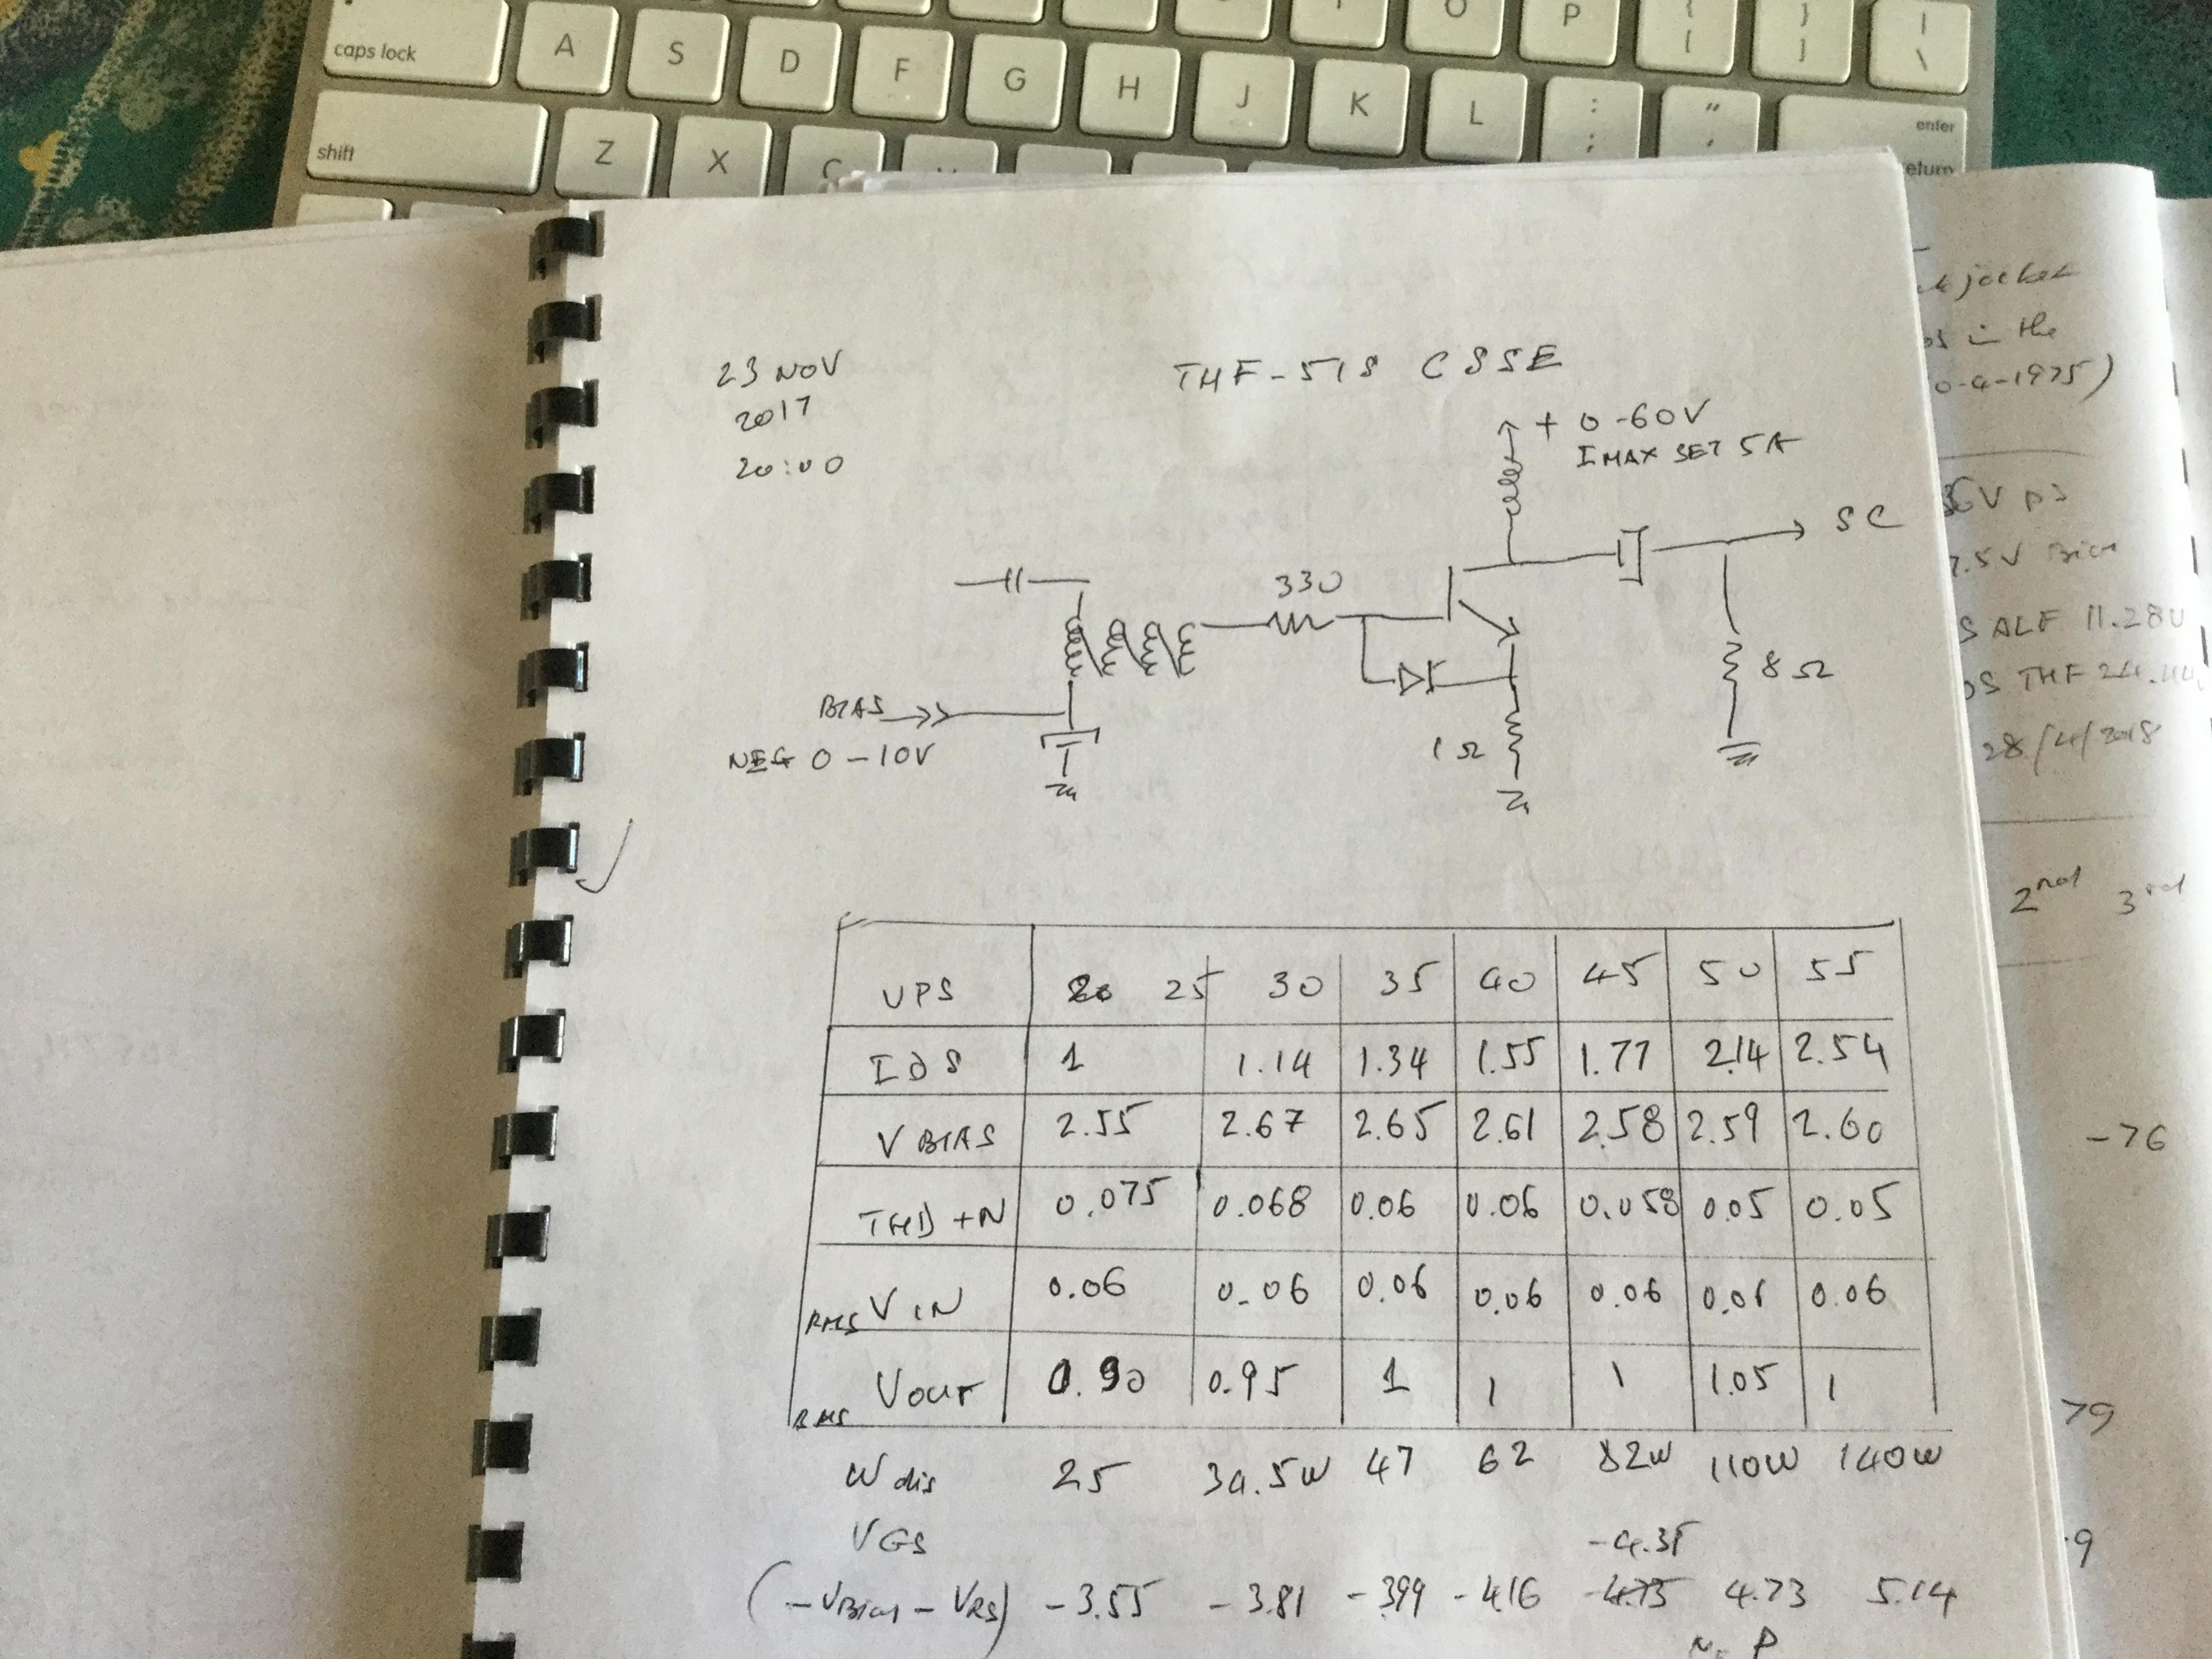 O P { [ } ] | \
caps lock A S D F G H J K L : ; " ' enter return
shift Z X C
23 NOV
2017
20:00
THF-51S CSSE
+ 0-60V
IMAX SET 5A
SC
330
8Ω
1Ω
BIAS
NEG 0-10V
VPS 20 25 30 35 40 45 50 55
IDS 1 1.14 1.34 1.55 1.77 2.14 2.54
V BIAS 2.55 2.67 2.65 2.61 2.58 2.59 2.60
THD+N 0.075 0.068 0.06 0.06 0.058 0.05 0.05
RMS VIN 0.06 0.06 0.06 0.06 0.06 0.06 0.06
RMS VOUT 0.90 0.95 1 1 1 1.05 1
W dis 25 34.5W 47 62 82W 110W 140W
VGS -4.35
(-VBias - VRS) -3.55 -3.81 -3.99 -4.16 -4.75 4.73 5.14
jocket
in the
0-4-1975)
36V PS
7.5V Bias
S ALF 11.28V
THF 24.44
28/4/2018
2nd 3rd
-76
79
9